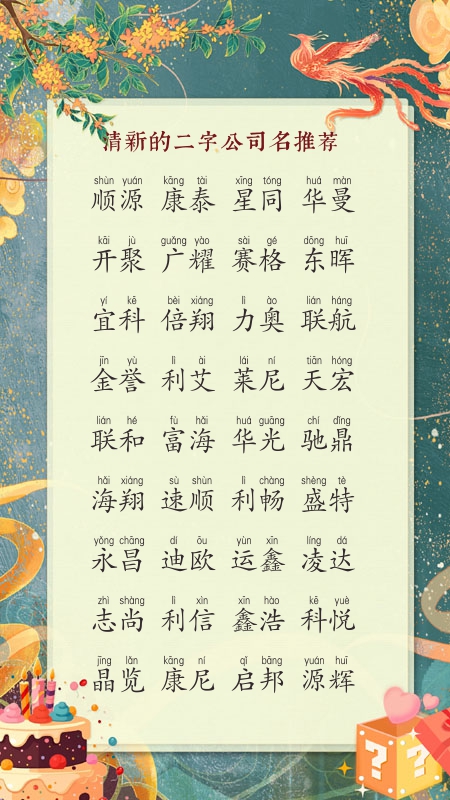 清新的二字公司名推荐
shùn yuán kāng tài xīng tóng huá màn
顺源 康泰 星同 华曼
kāi jù guǎng yào sài gé dōng huī
开聚 广耀 赛格 东晖
yí kē bèi xiáng lì ào lián háng
宜科 倍翔 力奥 联航
jīn yù lì ài lái ní tiān hóng
金誉 利艾 莱尼 天宏
lián hé fù hǎi huá guāng chí dǐng
联和 富海 华光 驰鼎
hǎi xiáng sù shùn lì chàng shèng tè
海翔 速顺 利畅 盛特
yǒng chāng dí ōu yùn xīn líng dá
永昌 迪欧 运鑫 凌达
zhì shàng lì xìn xīn hào kē yuè
志尚 利信 鑫浩 科悦
jīng lǎn kāng ní qǐ bāng yuán huī
晶览 康尼 启邦 源辉
? ?